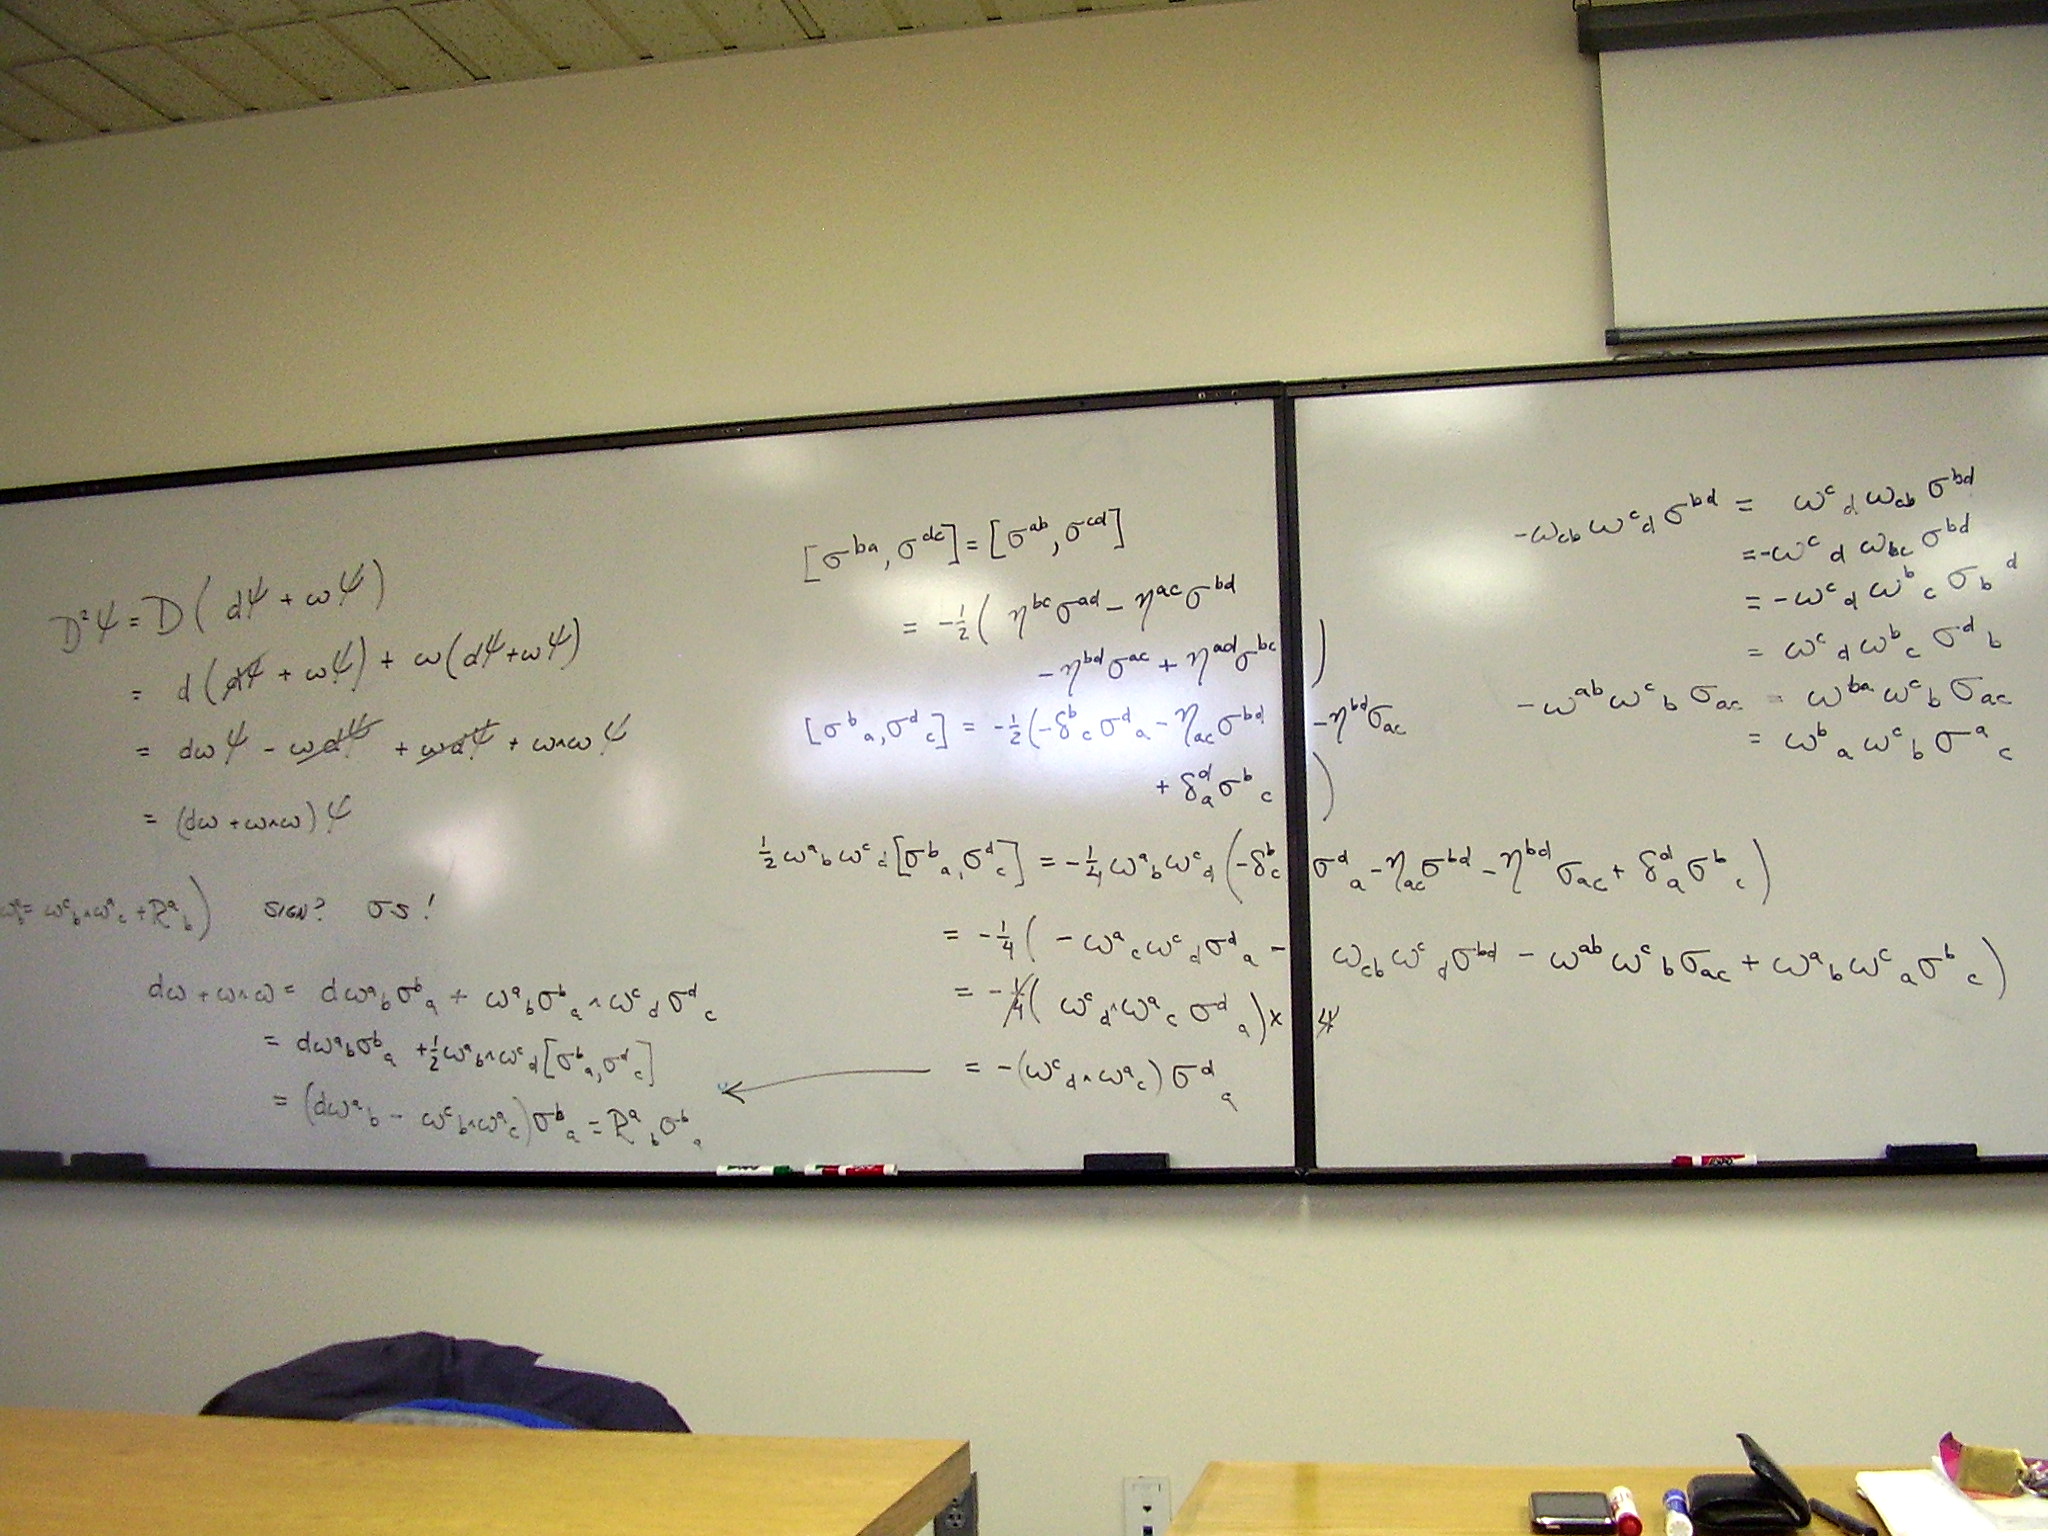 D²ψ = D( dψ + ωψ)
= d(dψ + ωψ) + ω(dψ+ωψ)
= dωψ - ωdψ + ωdψ + ω∧ωψ
= (dω + ω∧ω)ψ
= ω^c_b∧ω^a_c + R^a_b) SIGN? σs!
dω + ω∧ω = dω^a_b σ^b_a + ω^a_b σ^b_a ∧ ω^c_d σ^d_c
= dω^a_b σ^b_a + ½ ω^a_b∧ω^c_d [σ^b_a, σ^d_c]
= (dω^a_b - ω^c_b∧ω^a_c)σ^b_a = R^a_b σ^b_a
[σ^{ba}, σ^{dc}] = [σ^{ab}, σ^{cd}]
= -½( η^{bc}σ^{ad} - η^{ac}σ^{bd}
- η^{bd}σ^{ac} + η^{ad}σ^{bc} )
[σ^b_a, σ^d_c] = -½(-δ^b_c σ^d_a - η_{ac}σ^{bd} - η^{bd}σ_{ac}
+ δ^d_a σ^b_c )
½ω^a_b ω^c_d [σ^b_a, σ^d_c] = -¼ω^a_b ω^c_d (-δ^b_c σ^d_a - η_{ac}σ^{bd} - η^{bd}σ_{ac} + δ^d_a σ^b_c )
= -¼( -ω^a_c ω^c_d σ^d_a - ω_{cb}ω^c_d σ^{bd} - ω^{ab}ω^c_b σ_{ac} + ω^a_b ω^c_a σ^b_c )
= -¼( ω^c_d∧ω^a_c σ^d_a ) × 4
= -(ω^c_d∧ω^a_c) σ^d_a
-ω_{cb}ω^c_d σ^{bd} = ω^c_d ω_{cb} σ^{bd}
= -ω^c_d ω_{bc} σ^{bd}
= -ω^c_d ω^b_c σ_b^d
= ω^c_d ω^b_c σ^d_b
-ω^{ab}ω^c_b σ_{ac} = ω^{ba}ω^c_b σ_{ac}
= ω^b_a ω^c_b σ^a_c